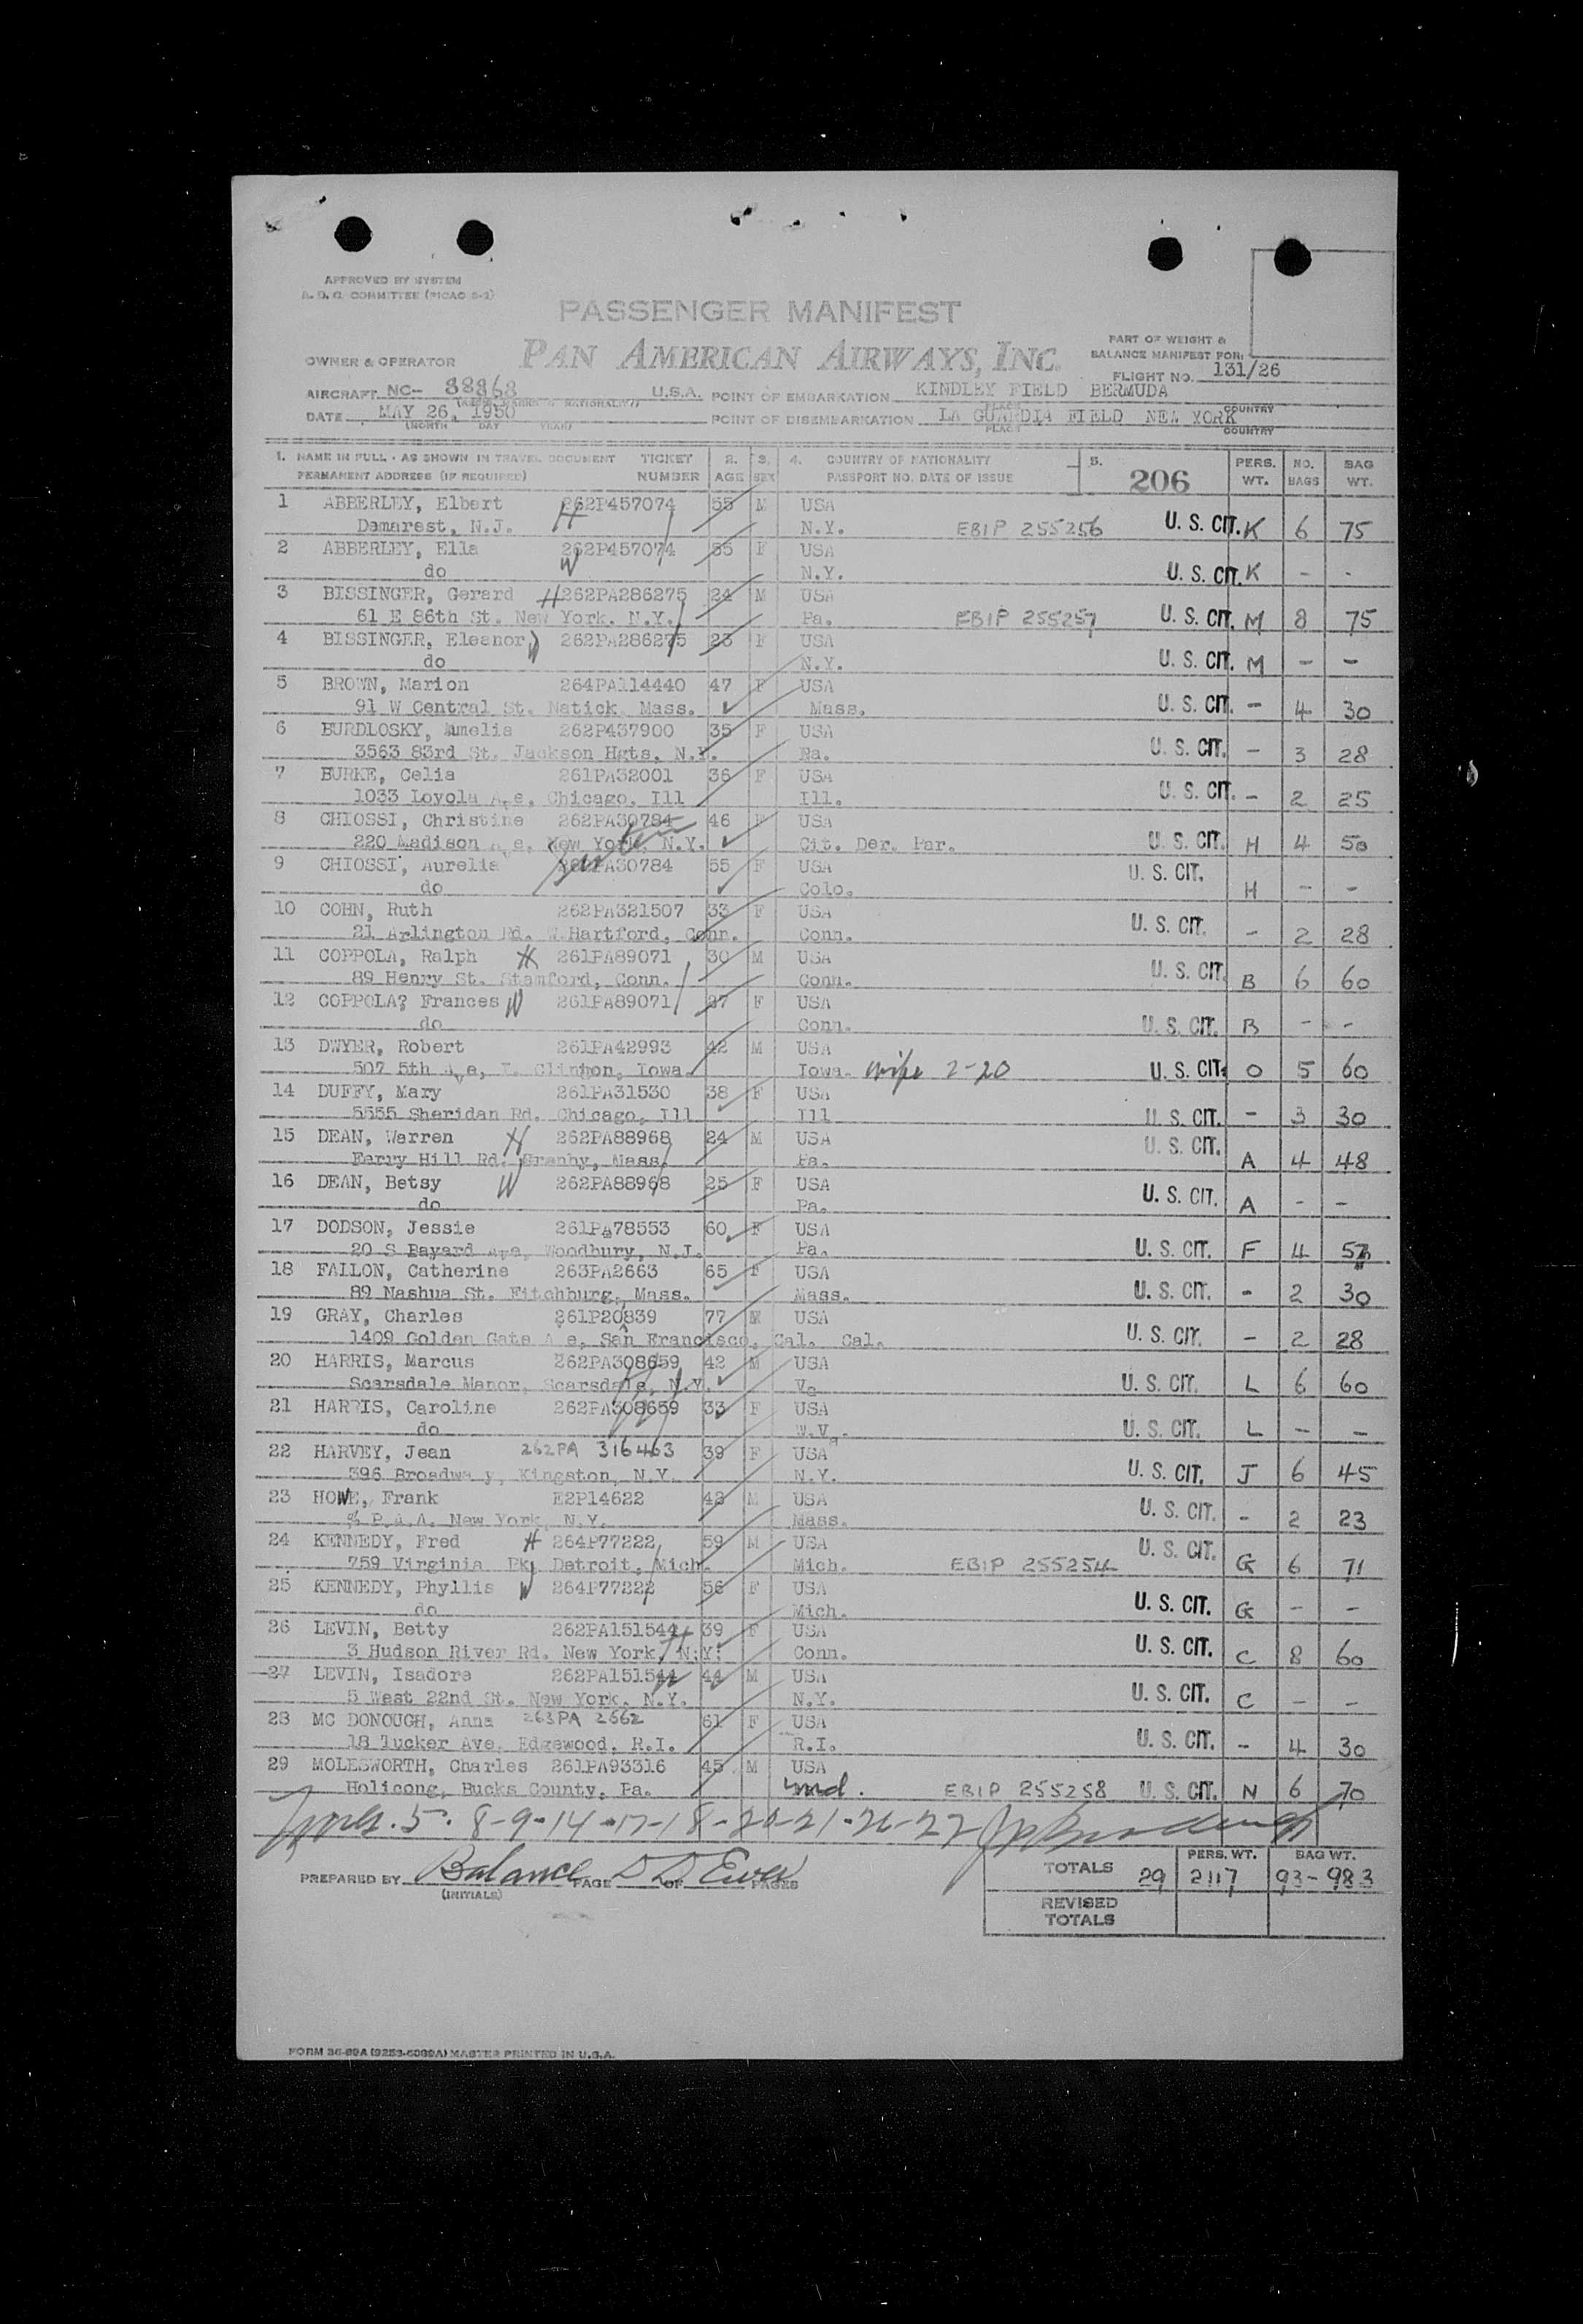 APPROVED BY SYSTEM
A. D. C. COMMITTEE (PICAO S-2)
PASSENGER MANIFEST
OWNER & OPERATOR PAN AMERICAN AIRWAYS, INC. PART OF WEIGHT & BALANCE MANIFEST FOR:
FLIGHT NO. 131/26
AIRCRAFT NC-- 88868 U.S.A. POINT OF EMBARKATION KINDLEY FIELD BERMUDA
DATE MAY 26, 1950 POINT OF DISEMBARKATION LA GUARDIA FIELD NEW YORK
(MONTH DAY YEAR) PLACE COUNTRY
1. NAME IN FULL - AS SHOWN IN TRAVEL DOCUMENT TICKET 2. 3. 4. COUNTRY OF NATIONALITY 5. 206 PERS. NO. BAG
PERMANENT ADDRESS (IF REQUIRED) NUMBER AGE SEX PASSPORT NO. DATE OF ISSUE WT. BAGS WT.
1 ABBERLEY, Elbert 262P457074 55 M USA
Demarest, N.J. H N.Y. EBIP 255256 U. S. CIT. K 6 75
2 ABBERLEY, Ella 262P457074 55 F USA
do W N.Y. U. S. CIT. K - -
3 BISSINGER, Gerard H 262PA286275 24 M USA
61 E 86th St. New York, N.Y. Pa. EBIP 255257 U. S. CIT. M 8 75
4 BISSINGER, Eleanor W 262PA286275 23 F USA
do N.Y. U. S. CIT. M - -
5 BROWN, Marion 264PA114440 47 F USA
91 W Central St. Natick, Mass. Mass. U. S. CIT. - 4 30
6 BURDLOSKY, Amelia 262P437900 35 F USA
3563 83rd St. Jackson Hgts, N.Y. Pa. U. S. CIT. - 3 28
7 BURKE, Celia 261PA32001 36 F USA
1033 Loyola Ave, Chicago, Ill Ill. U. S. CIT. - 2 25
8 CHIOSSI, Christine 262PA30784 46 F USA
220 Madison Ave, New York, N.Y. Cit. Der. Par. U. S. CIT. H 4 50
9 CHIOSSI, Aurelia 262PA30784 55 F USA
do Colo. U. S. CIT. H - -
10 COHN, Ruth 262PA321507 33 F USA
21 Arlington Rd. W.Hartford, Conn. Conn. U. S. CIT. - 2 28
11 COPPOLA, Ralph H 261PA89071 30 M USA
89 Henry St. Stamford, Conn. Conn. U. S. CIT. B 6 60
12 COPPOLA? Frances W 261PA89071 27 F USA
do Conn. U. S. CIT. B - -
13 DWYER, Robert 261PA42993 42 M USA
507 5th Ave, Clinton, Iowa Iowa. wife 2-20 U. S. CIT. O 5 60
14 DUFFY, Mary 261PA31530 38 F USA
5555 Sheridan Rd. Chicago, Ill Ill U. S. CIT. - 3 30
15 DEAN, Warren H 262PA88968 24 M USA
Ferry Hill Rd. Granby, Mass. Pa. U. S. CIT. A 4 48
16 DEAN, Betsy W 262PA88968 25 F USA
do Pa. U. S. CIT. A - -
17 DODSON, Jessie 261PA78553 60 F USA
20 S Bayard Ave, Woodbury, N.J. Pa. U. S. CIT. F 4
18 FALLON, Catherine 263PA2663 65 F USA
89 Nashua St. Fitchburg, Mass. Mass. U. S. CIT. - 2 30
19 GRAY, Charles 261P20839 77 M USA
1409 Golden Gate Ave, San Francisco, Cal. Cal. U. S. CIT. - 2 28
20 HARRIS, Marcus 262PA308659 42 M USA
Scarsdale Manor, Scarsdale, N.Y. Va U. S. CIT. L 6 60
21 HARRIS, Caroline 262PA308659 33 F USA
do W W.Va. U. S. CIT. L - -
22 HARVEY, Jean 262PA 316463 39 F USA
396 Broadway, Kingston, N.Y. N.Y. U. S. CIT. J 6 45
23 HOWE, Frank E2P14622 42 M USA
% P.A.A. New York, N.Y. Mass. U. S. CIT. - 2 23
24 KENNEDY, Fred H 264P77222 59 M USA
759 Virginia Pk, Detroit, Mich. Mich. EBIP 255254 U. S. CIT. G 6 71
25 KENNEDY, Phyllis W 264P77222 56 F USA
do Mich. U. S. CIT. G - -
26 LEVIN, Betty 262PA151544 39 F USA
3 Hudson River Rd. New York, N.Y. Conn. U. S. CIT. C 8 60
27 LEVIN, Isadore 262PA151544 44 M USA
5 West 22nd St. New York, N.Y. N.Y. U. S. CIT. C - -
28 MC DONOUGH, Anna 263PA 2662 61 F USA
18 Tucker Ave, Edgewood, R.I. R.I. U. S. CIT. - 4 30
29 MOLESWORTH, Charles 261PA93316 45 M USA
Holicong, Bucks County, Pa. Md. EBIP 255258 U. S. CIT. N 6 70
5-8-9-14-17-18-20-21-26-27
PREPARED BY Balance PAGE OF PAGES
(INITIALS)
PERS. WT. BAG WT.
TOTALS 29 2117 93-983
REVISED TOTALS
FORM 36-89A (9253-6089A) MASTER PRINTED IN U.S.A.